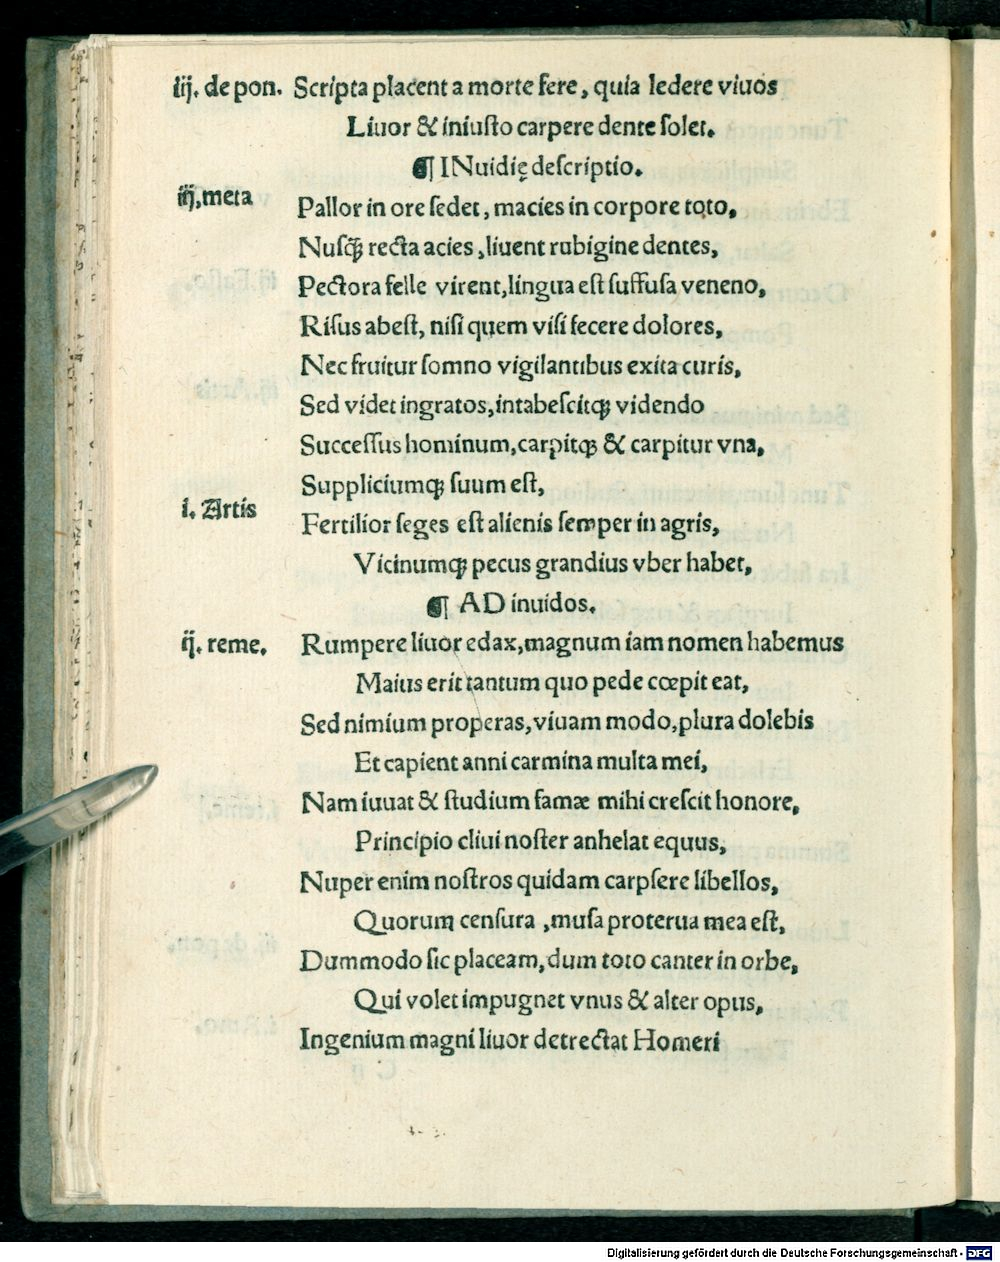 iij. de pon. Scripta placent a morte fere, quia ledere viuos
Liuor & iniusto carpere dente solet.
¶ INuidię descriptio.
iij,meta
Pallor in ore sedet, macies in corpore toto,
Nusq̃ recta acies, liuent rubigine dentes,
Pectora felle virent, lingua est suffusa veneno,
Risus abest, nisi quem visi fecere dolores,
Nec fruitur somno vigilantibus exita curis,
Sed videt ingratos, intabescitq; videndo
Successus hominum, carpitq; & carpitur vna,
Suppliciumq; suum est,
i. Artis
Fertilior seges est alienis semper in agris,
Vicinumq; pecus grandius vber habet,
¶ AD inuidos.
ij. reme. Rumpere liuor edax, magnum iam nomen habemus
Maius erit tantum quo pede cœpit eat,
Sed nimium properas, viuam modo, plura dolebis
Et capient anni carmina multa mei,
Nam iuuat & studium famæ mihi crescit honore,
Principio cliui noster anhelat equus,
Nuper enim nostros quidam carpsere libellos,
Quorum censura, musa proterua mea est,
Dummodo sic placeam, dum toto canter in orbe,
Qui volet impugnet vnus & alter opus,
Ingenium magni liuor detrectat Homeri
Digitalisierung gefördert durch die Deutsche Forschungsgemeinschaft - DFG